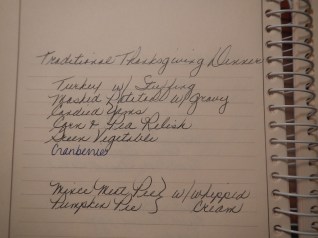 Traditional Thanksgiving Dinner
Turkey w/ Stuffing
Mashed Potatoes w/ Gravy
Candied Yams
Corn & Pea Relish
Green Vegetable
Cranberries
Mince Meat Pie } w/ Whipped
Pumpkin Pie } Cream